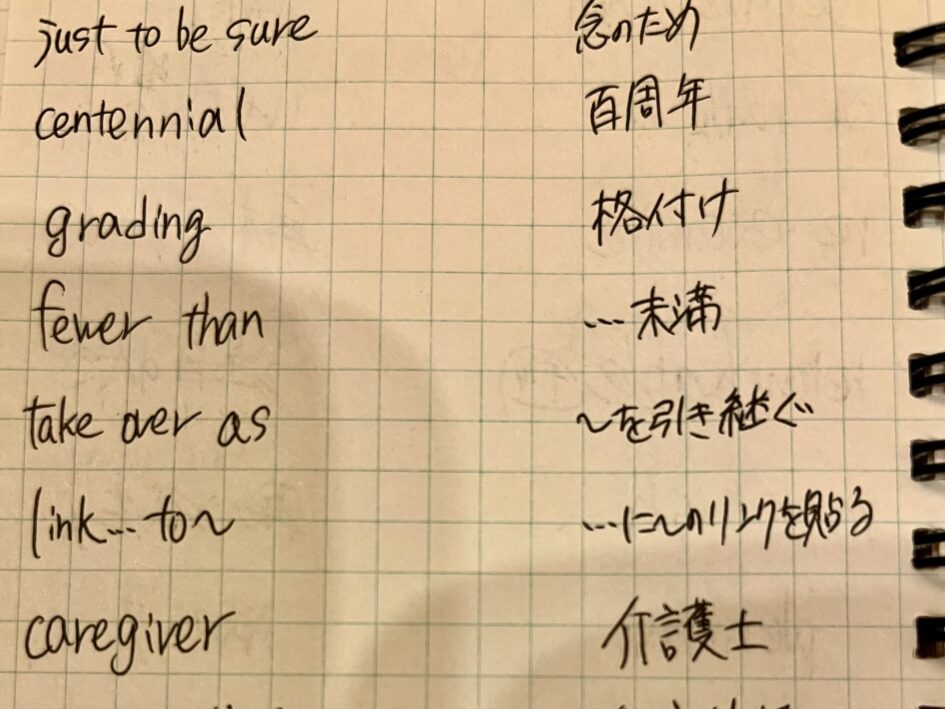 just to be sure 念のため
centennial 百周年
grading 格付け
fewer than …未満
take over as ～を引き継ぐ
link…to～ …に～のリンクを貼る
caregiver 介護士